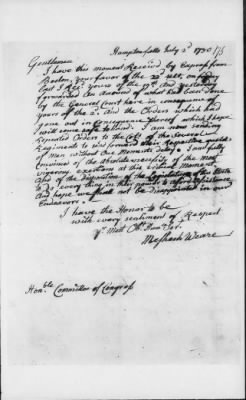 Hampton falls July 3d 1780
175
Gentlemen
I have this moment Receivd by Express from
Boston your favor of the 22d Ulto, on
last I Recd. yours of the 19th And yesterday
forwarded An Account of what had been done
by the General Court here in consequence of
yours of the 2d And the Orders which had
gone out in Consequence thereof which I hope
will come safe to hand. I am now sending
Repeated Orders to the of the Several
Regiments to forward their Respective
of Men without One Moments delay. I am fully
convinced of the Absolute necessity of the most
vigorous exertions at this Moment,
And of the disposition of the Legislature of this State
to do every thing in their power to afford Assistance
And hope we shall not be disappointed in our
Endeavors.
I have the Honor to be
with every sentiment of Respect
yr. Most Obt. Humle Ser.
Meshech Weare
Honble. Committee of Congress